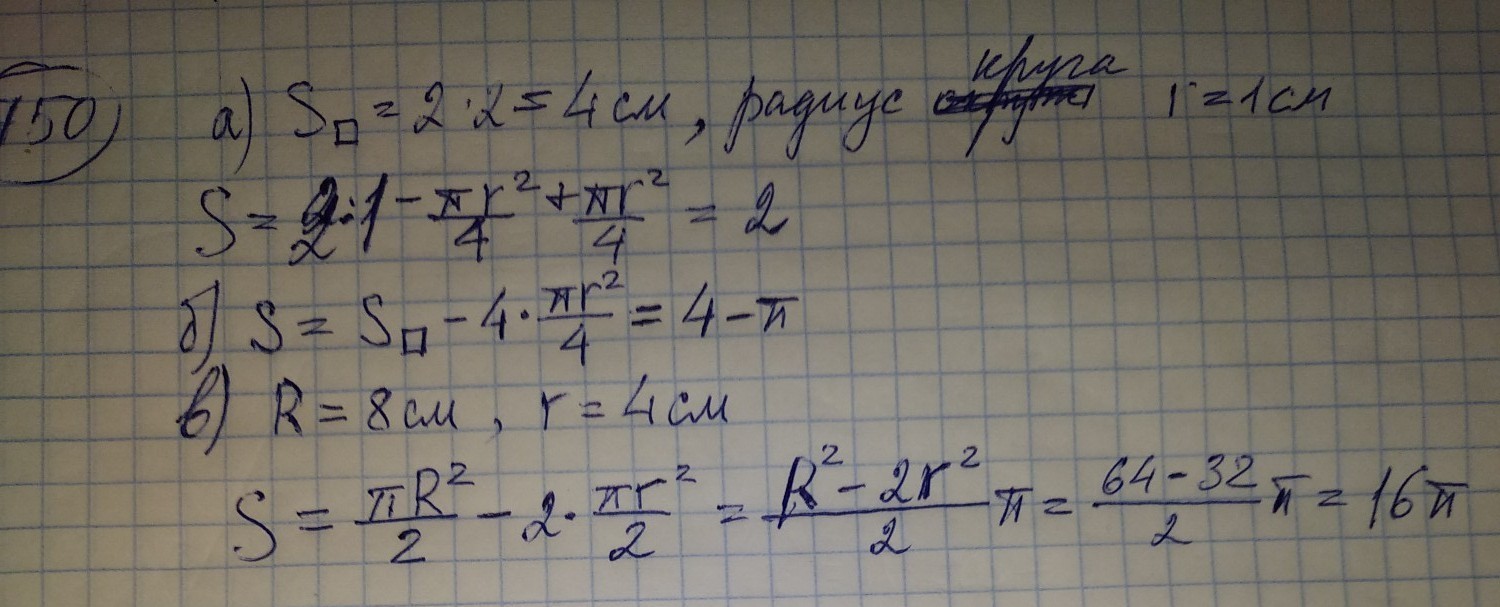 150) а) S□ = 2·2 = 4 см, радиус круга r = 1 см
S = 2·1 - πr²/4 + πr²/4 = 2
б) S = S□ - 4·πr²/4 = 4 - π
в) R = 8 см, r = 4 см
S = πR²/2 - 2·πr²/2 = (R² - 2r²)/2 π = (64 - 32)/2 π = 16π